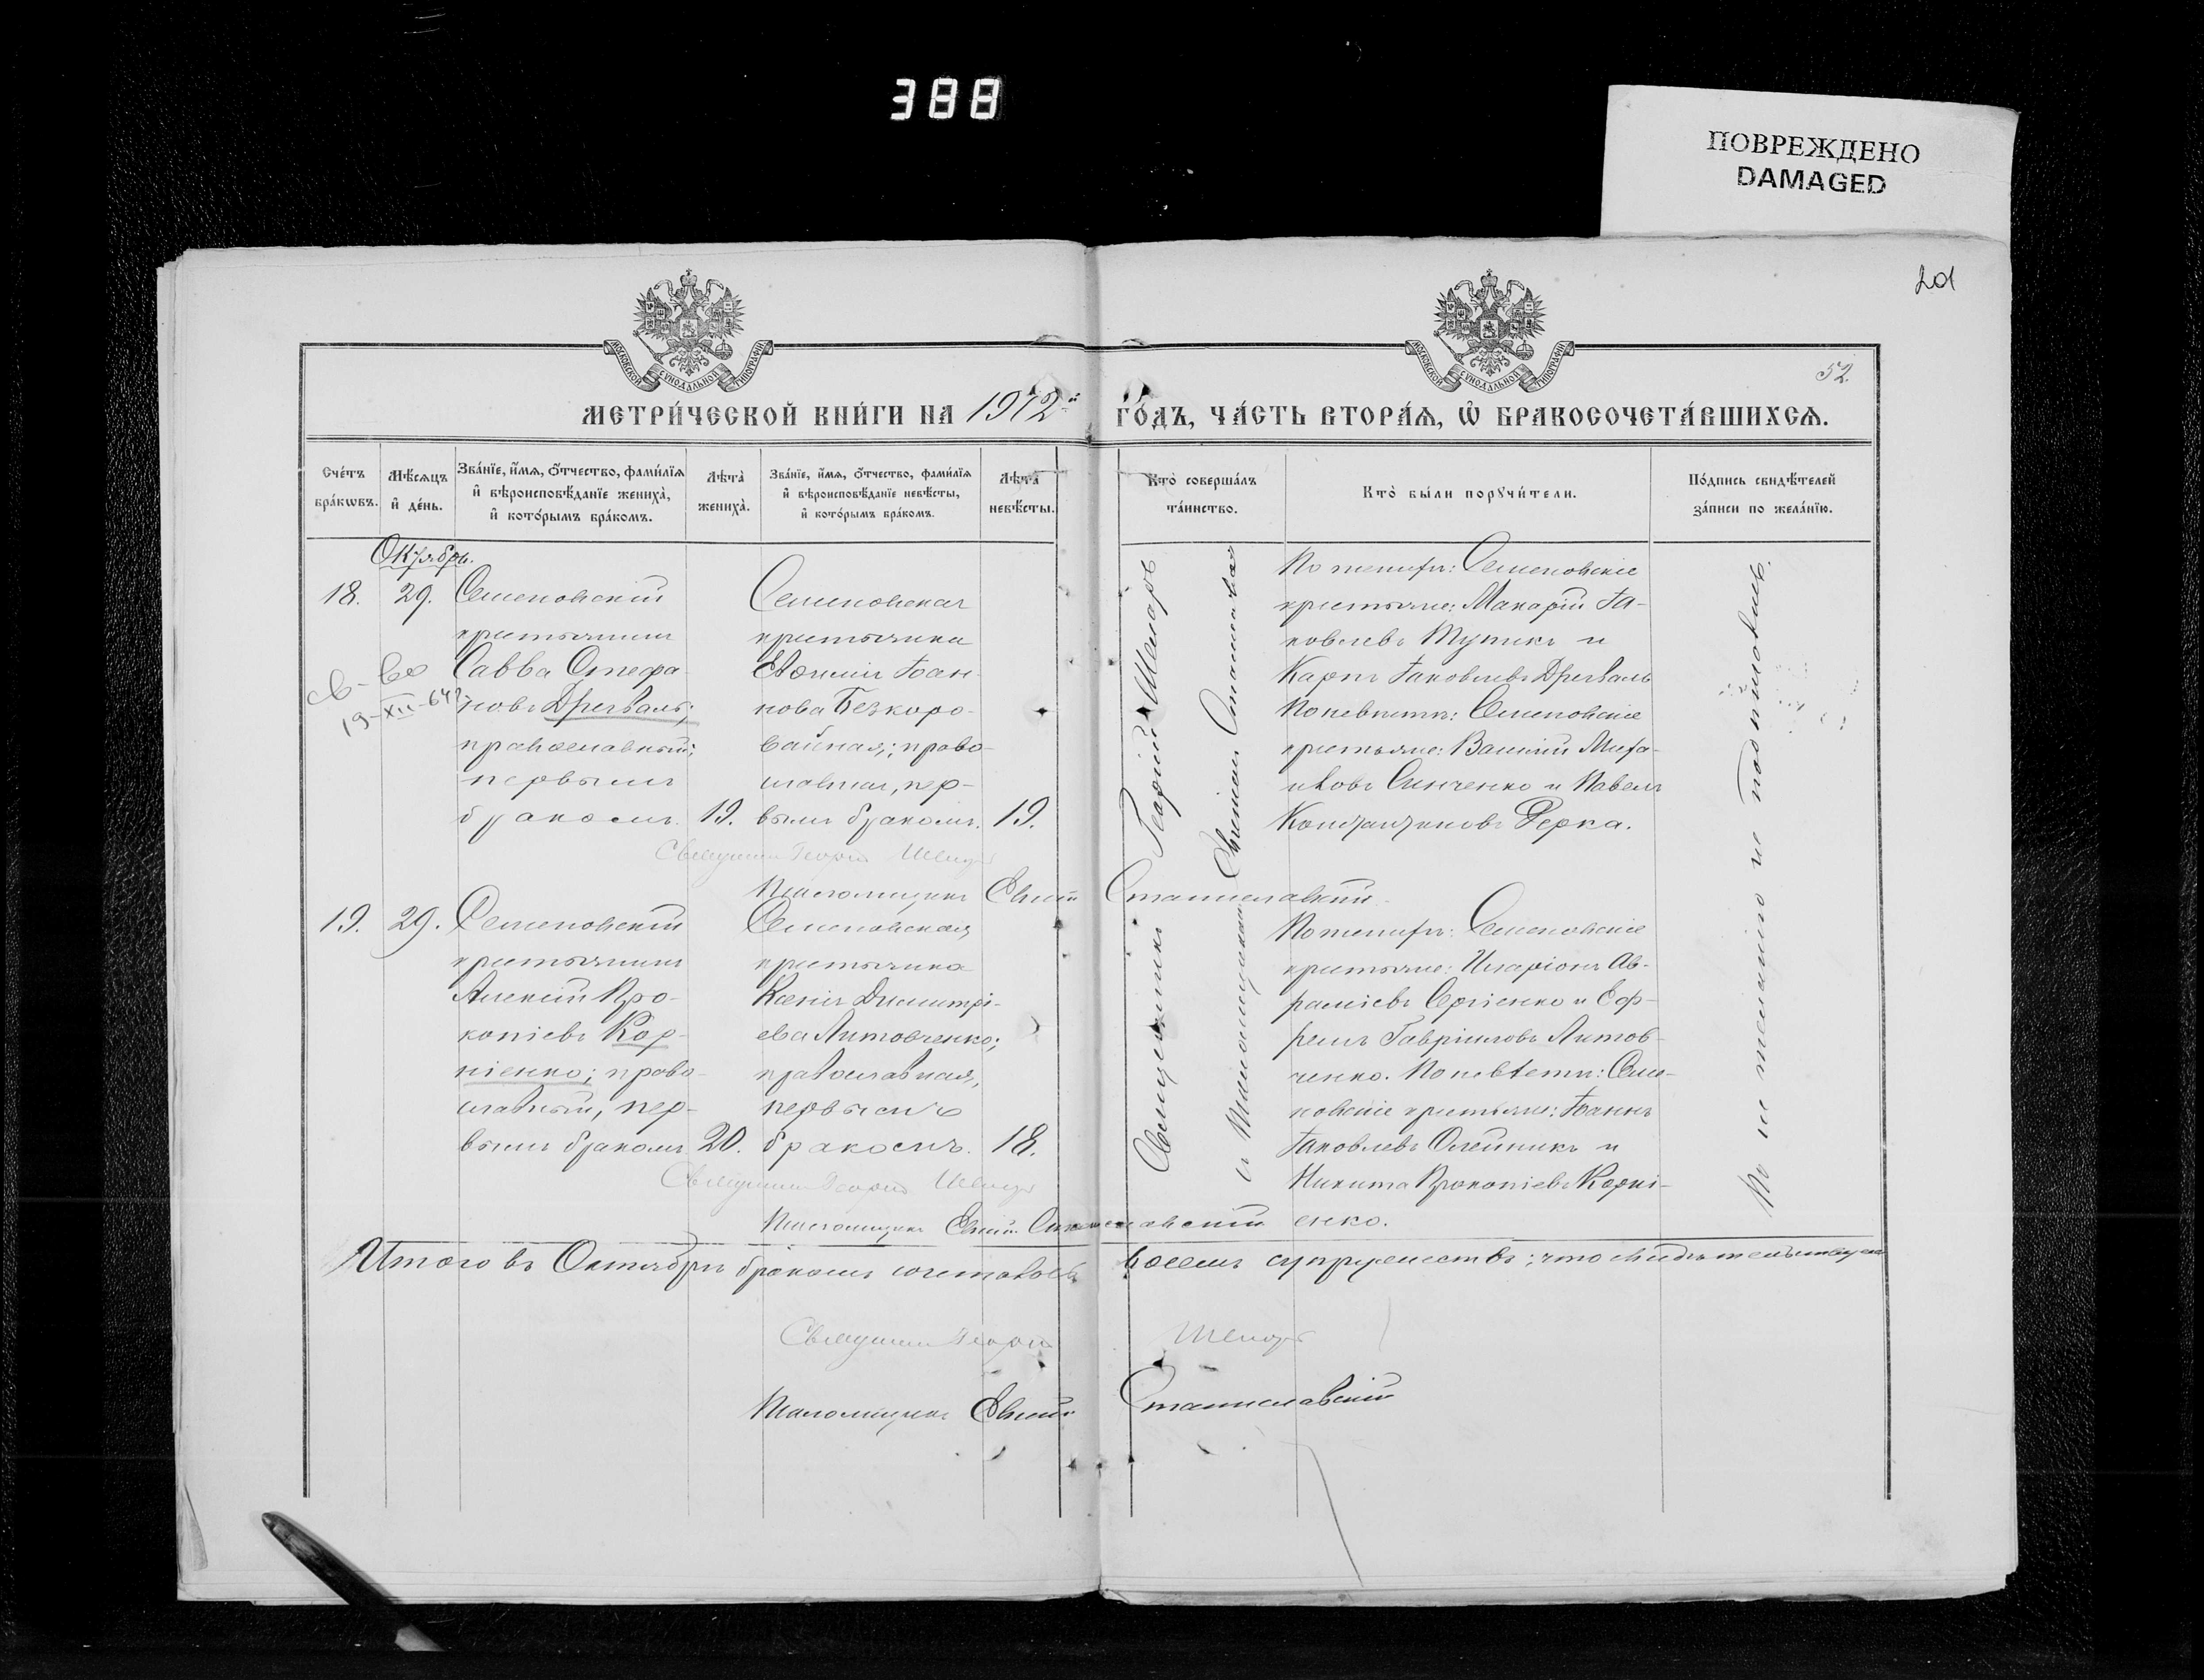 388
ПОВРЕЖДЕНО
DAMAGED
201
52.
МЕТРИ́ЧЕСКОЙ КНИ́ГИ НА 1912й ГО́ДЪ, ЧА́СТЬ ВТОРА́Ѧ, Ѿ БРАКОСОЧЕТА́ВШИХСѦ.
Сче́тъ бра́кѡвъ.
Мѣ́сѧцъ и҆ де́нь.
Зва́нїе, и҆́мѧ, ѻ҆́тчество, фами́лїѧ и҆ вѣроисповѣ́данїе жениха̀, и҆ кото́рымъ бра́комъ.
Лѣта̀ жениха̀.
Зва́нїе, и҆́мѧ, ѻ҆́тчество, фами́лїѧ и҆ вѣроисповѣ́данїе невѣ́сты, и҆ кото́рымъ бра́комъ.
Лѣта̀ невѣ́сты.
Кто̀ соверша́лъ та́инство.
Кто̀ бы́ли порꙋчи́тели.
По́дпись свидѣ́телей за́писи по жела́нїю.
Октябрь.
18.
29.
св-во
19-XII-64
Семеновскій
крестьянинъ
Савва Стефа-
новъ Дрегваль;
православный;
первымъ
бракомъ.
19.
Семеновская
крестьянка
Евѳимія Іоан-
нова Безкоро-
вайная; право-
славная, пер-
вымъ бракомъ.
19.
По женихѣ: Семеновскіе
крестьяне: Макарій Іа-
ковлевъ Тупикъ и
Карпъ Іаковлевъ Дрегваль
По невѣстѣ: Семеновскіе
крестьяне: Василій Миха-
иловъ Синченко и Павелъ
Константиновъ Герка.
Священникъ Георгій
Псаломщикъ Евѳимій Станиславскій.
19.
29.
Семеновскій
крестьянинъ
Алексій Про-
копіевъ Кор-
ніенко; право-
славный, пер-
вымъ бракомъ
20.
Семеновская
крестьянка
Ксенія Димитрі-
ева Литовченко;
православная,
первымъ
бракомъ.
18.
По женихѣ: Семеновскіе
крестьяне: Иларіонъ Ав-
раміевъ Сергіенко и Еф-
ремъ Гавріиловъ Литов-
ченко. По невѣстѣ: Семе-
новскіе крестьяне: Іоаннъ
Іаковлевъ Олейникъ и
Никита Прокопіевъ Корні-
енко.
Священникъ Георгій
съ Псаломщикомъ Евѳиміемъ Станиславскимъ
Священникъ Георгій
Псаломщикъ Евѳимій Станиславскій
Итого въ Октябрѣ бракомъ сочеталось восемь супружествъ; что свидѣтельствуемъ
Священникъ Георгій
Псаломщикъ Евѳимій Станиславскій